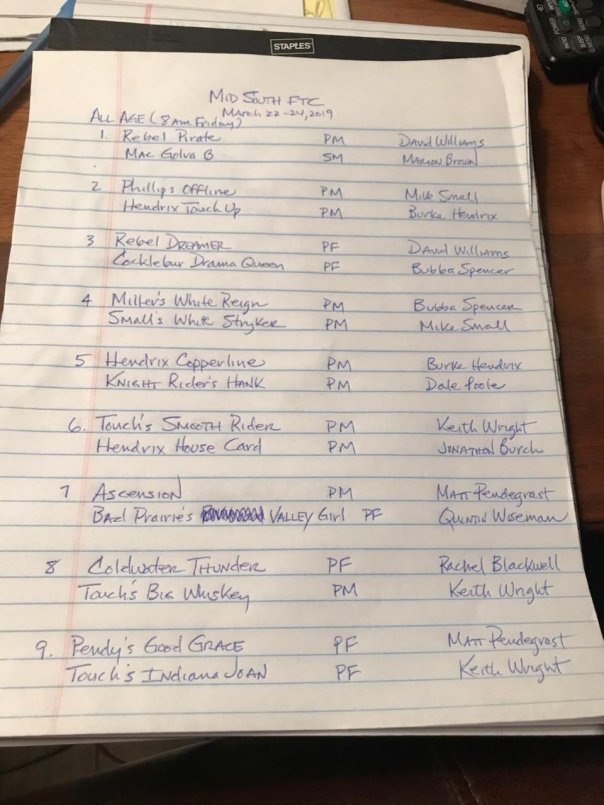 STAPLES
MID SOUTH FTC
March 22-24, 2019
ALL AGE (8am Friday)
1. Rebel Pirate PM David Williams
Mac Golva B SM Marlon Brown
2 Phillips Offline PM Mike Small
Hendrix Touch Up PM Burke Hendrix
3 Rebel Dreamer PF David Williams
Cocklebur Drama Queen PF Bubba Spencer
4 Miller's White Reign PM Bubba Spencer
Small's White Stryker PM Mike Small
5 Hendrix Copperline PM Burke Hendrix
Knight Rider's Hank PM Dale Poole
6. Touch's Smooth Rider PM Keith Wright
Hendrix House Card PM Jonathon Burch
7 Ascension PM Matt Pendegrast
Bazl Prairie's Valley Girl PF Quintin Wiseman
8 Coldwater Thunder PF Rachel Blackwell
Touch's Big Whiskey PM Keith Wright
9. Pendy's Good Grace PF Matt Pendegrast
Touch's Indiana Joan PF Keith Wright